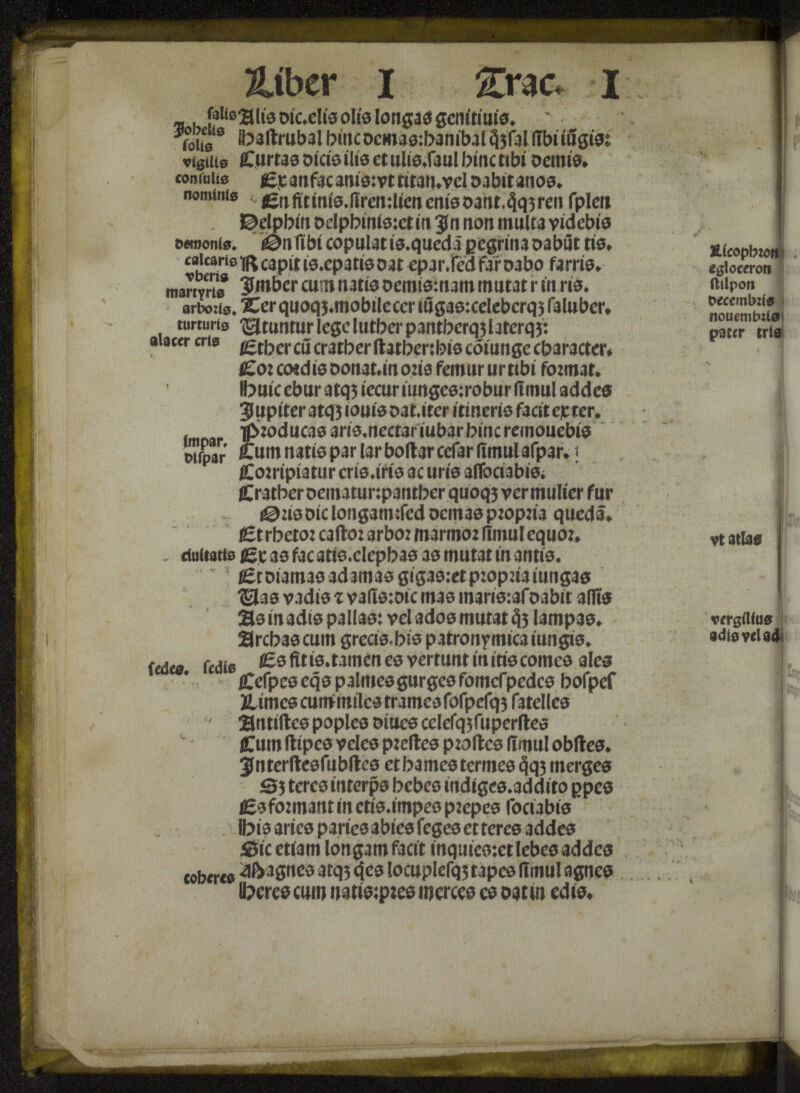 Liber I Trac. I
salis Alis dic.elis olis longas genitiuis.
Jobelis
folis Hastrubal hinc demas:hanibal q̃ꝫ sal sibi iũgis:
vigilis Curtas dicis ilis et ulis.saul hinc tibi demis.
consulis Ex an fac anis:vt titan.vel dabit anos.
nominis En fit inis.siren:lien enis dant.q̃qꝫ ren splen
Delphin delphinis:et in In non multa videbis
demonis. On sibi copulat is.quedã pegrina dabũt tis.
Licophron
calcaris R capit is.ep atis dat epar.sed far dabo farris.
egloceron
vberis
martyris Imber cum natis demis:nam mutat r in ris.
stilpon
arboris. Ter quoqꝫ.mobile cer iũgas:celeberqꝫ saluber.
decembris
nouembris
turturis Utuntur lege luther pantherqꝫ laterqꝫ:
pater tris
alacer cris Ether cũ crather stather:his cõiunge character.
Cor cordis donat.in oris femur ur tibi format.
Huic ebur atqꝫ iecur iunges:robur simul addes
Jupiter atqꝫ iouis dat.iter itineris facit exter.
Producas aris.nectar iubar hinc remouebis
impar.
dispar Cum natis par lar bostar cesar simul aspar.
Corripiatur cris.iris ac uris associabis.
Crather dematur:panther quoqꝫ ver mulier fur
Oris dic longam:sed demas propria quedã.
Et rhetor castor arbor marmor simul equor.
vt atlas
ciuitatis Ex as fac atis.elephas as mutat in antis.
Et diamas adamas gigas:et propria iungas
Uas vadis ⁊ vasis:dic mas maris:as dabit assis
As in adis pallas: vel ados mutat q̃ꝫ lampas.
vergilius
Archas cum grecis.his patronymica iungis.
adis vel ad
sedes. sedis Es fit is.tamen es vertunt in itis comes ales
Cespes eq̃s palmes gurges fomes pedes hospes
Limes cum miles trames sospesqꝫ satelles
Antistes poples diues celesqꝫ superstes
Cum stipes veles prestes prostes simul obstes.
Interstes substes et hames termes q̃qꝫ merges
Sꝫ teres interp̃s hebes indiges.addito ppes
Es formant in etis.impes prepes sociabis
His aries paries abies seges et teres addes
Sic etiam longam facit inquies:et lebes addes
coheres Magnes atqꝫ q̃es locuplesqꝫ tapes simul agnes
Heres cum natis:pres merces es dat in edis.